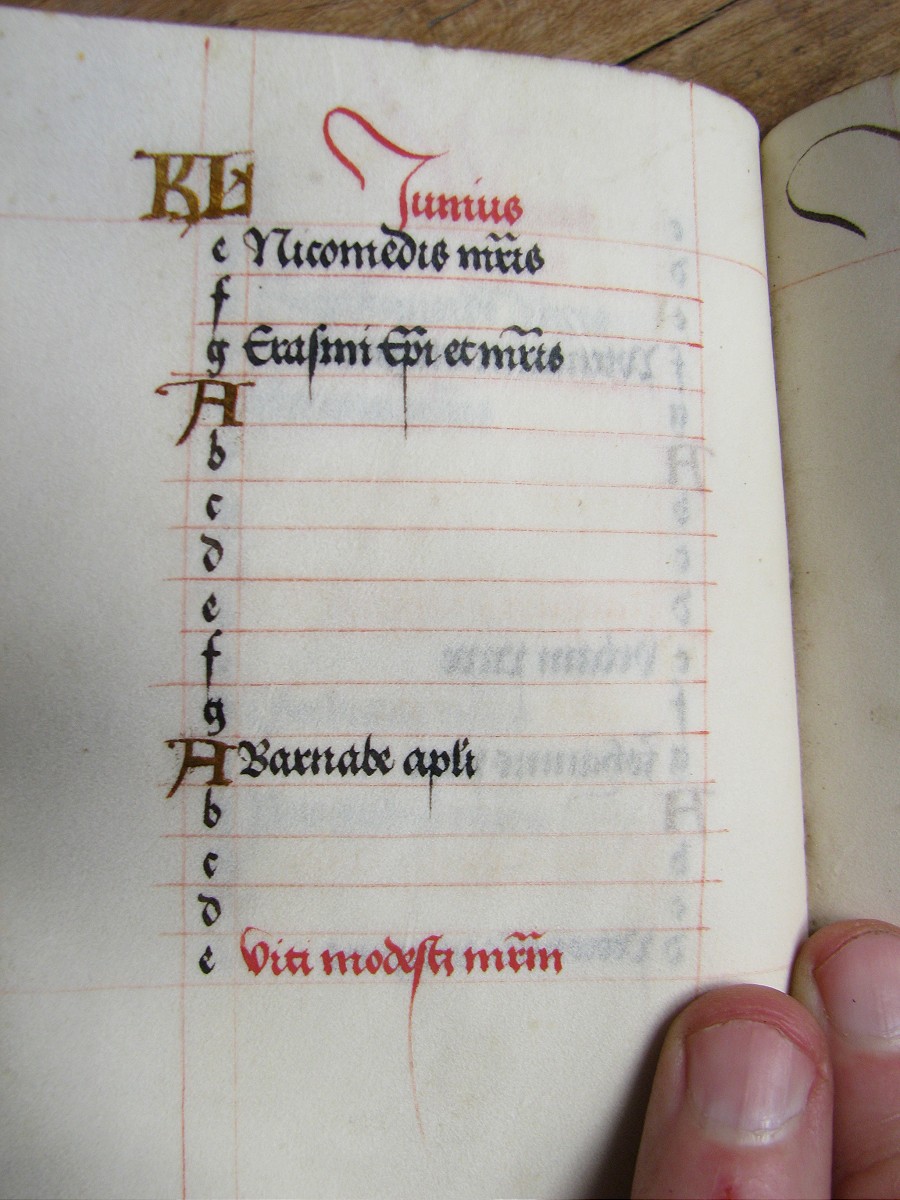 KL Junius
e Nicomedis mr̃is
f
g Erasmi Ep̃i et mr̃is
A
b
c
d
e
f
g
A Barnabe apl̃i
b
c
d
e Viti modesti mr̃m